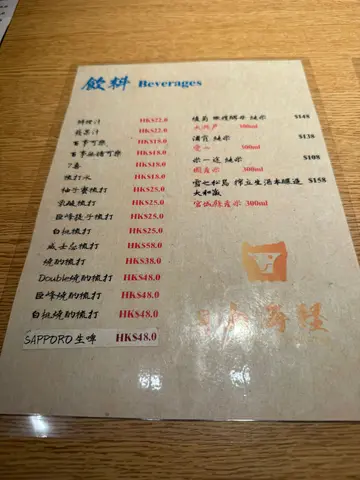 飲料 Beverages
鮮橙汁 HK$22.0
蘋果汁 HK$22.0
百事可樂 HK$18.0
百事無糖可樂 HK$18.0
7喜 HK$18.0
梳打水 HK$18.0
柚子蜜梳打 HK$25.0
乳酸梳打 HK$25.0
巨峰提子梳打 HK$25.0
白桃梳打 HK$25.0
威士忌梳打 HK$58.0
燒酌梳打 HK$38.0
Double燒酌梳打 HK$48.0
巨峰燒酌梳打 HK$48.0
白桃燒酌梳打 HK$48.0
SAPPORO生啤 HK$48.0
純米 $148
300ml
浦霞 純米 $138
300ml
米一途 純米 $108
國產米 300ml
雪之松島 搾立生酒本釀造 $158
大和蔵
宮城縣產米 300ml
壽